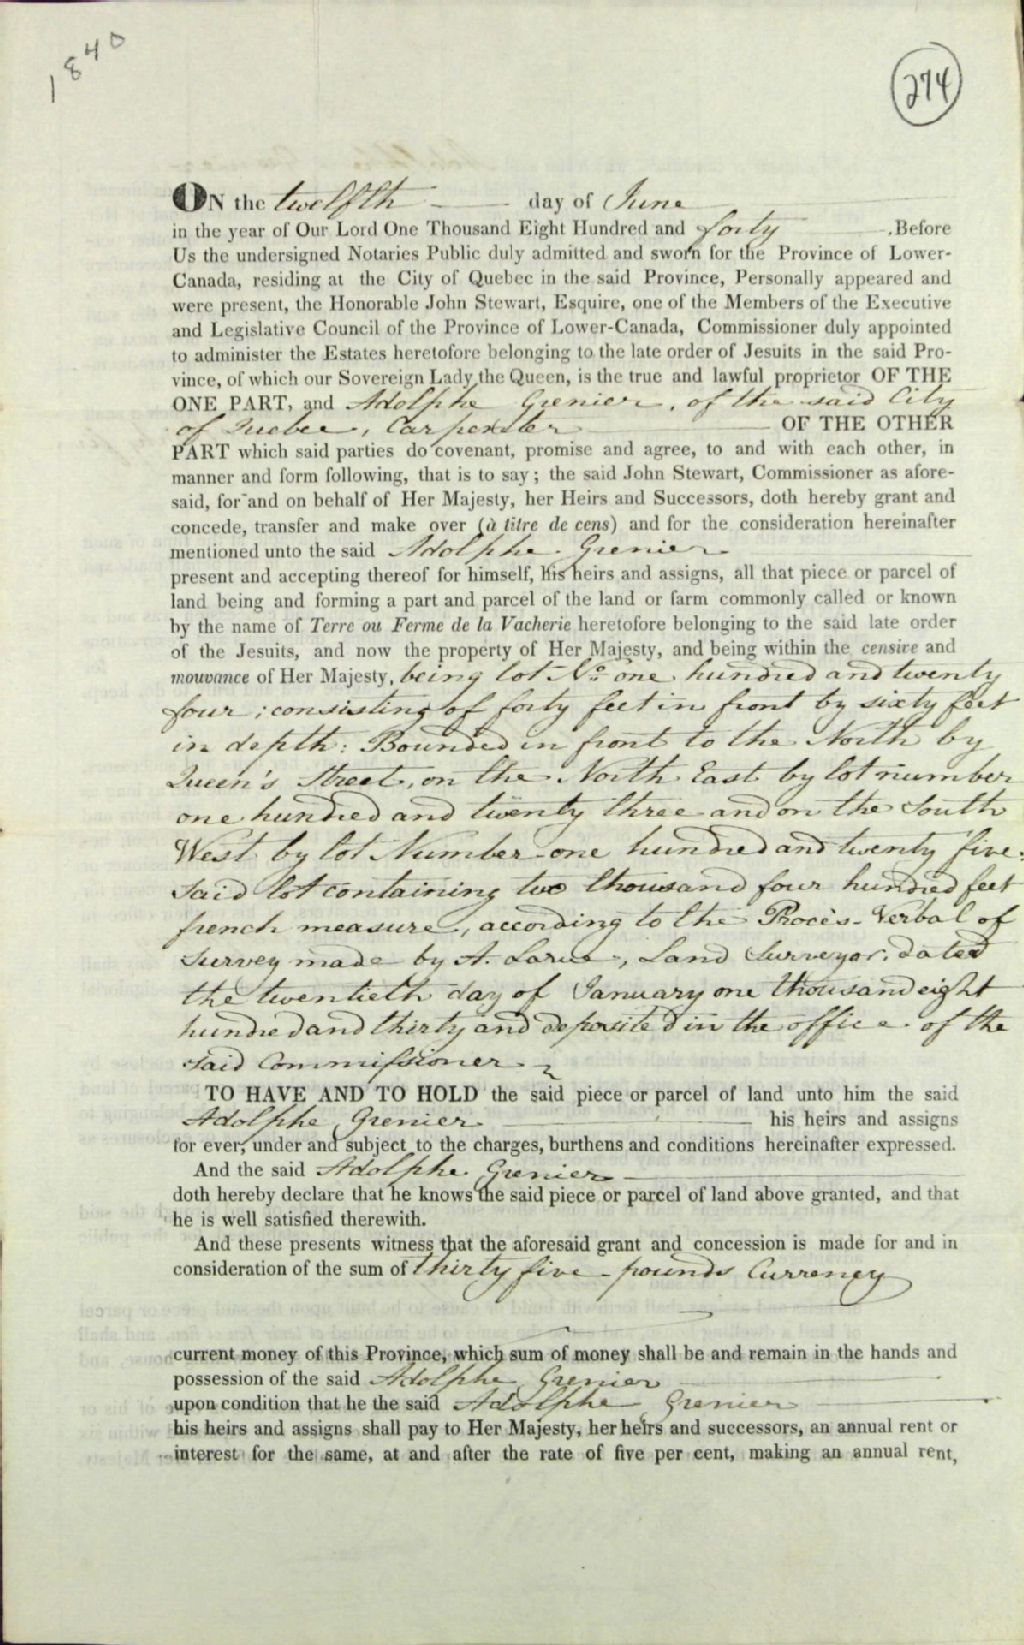 1840
274
ON the twelfth day of June
in the year of Our Lord One Thousand Eight Hundred and forty .Before
Us the undersigned Notaries Public duly admitted and sworn for the Province of Lower-
Canada, residing at the City of Quebec in the said Province, Personally appeared and
were present, the Honorable John Stewart, Esquire, one of the Members of the Executive
and Legislative Council of the Province of Lower-Canada, Commissioner duly appointed
to administer the Estates heretofore belonging to the late order of Jesuits in the said Pro-
vince, of which our Sovereign Lady the Queen, is the true and lawful proprietor OF THE
ONE PART, and Adolphe Grenier, of the said City
of Quebec, Carpenter OF THE OTHER
PART which said parties do covenant, promise and agree, to and with each other, in
manner and form following, that is to say; the said John Stewart, Commissioner as afore-
said, for and on behalf of Her Majesty, her Heirs and Successors, doth hereby grant and
concede, transfer and make over (à titre de cens) and for the consideration hereinafter
mentioned unto the said Adolphe Grenier
present and accepting thereof for himself, his heirs and assigns, all that piece or parcel of
land being and forming a part and parcel of the land or farm commonly called or known
by the name of Terre ou Ferme de la Vacherie heretofore belonging to the said late order
of the Jesuits, and now the property of Her Majesty, and being within the censive and
mouvance of Her Majesty, being lot No. one hundred and twenty
four; consisting of forty feet in front by sixty feet
in depth: Bounded in front to the North by
Queen's Street, on the North East by lot number
one hundred and twenty three and on the South
West by lot Number one hundred and twenty five:
Said lot containing two thousand four hundred feet
french measure, according to the Procès-Verbal of
Survey made by A. Larue, Land Surveyor, dated
the twentieth day of January one thousand eight
hundred and thirty and deposited in the office of the
said Commissioner
TO HAVE AND TO HOLD the said piece or parcel of land unto him the said
Adolphe Grenier his heirs and assigns
for ever, under and subject to the charges, burthens and conditions hereinafter expressed.
And the said Adolphe Grenier
doth hereby declare that he knows the said piece or parcel of land above granted, and that
he is well satisfied therewith.
And these presents witness that the aforesaid grant and concession is made for and in
consideration of the sum of thirty five pounds Currency
current money of this Province, which sum of money shall be and remain in the hands and
possession of the said Adolphe Grenier
upon condition that he the said Adolphe Grenier
his heirs and assigns shall pay to Her Majesty, her heirs and successors, an annual rent or
interest for the same, at and after the rate of five per cent, making an annual rent,